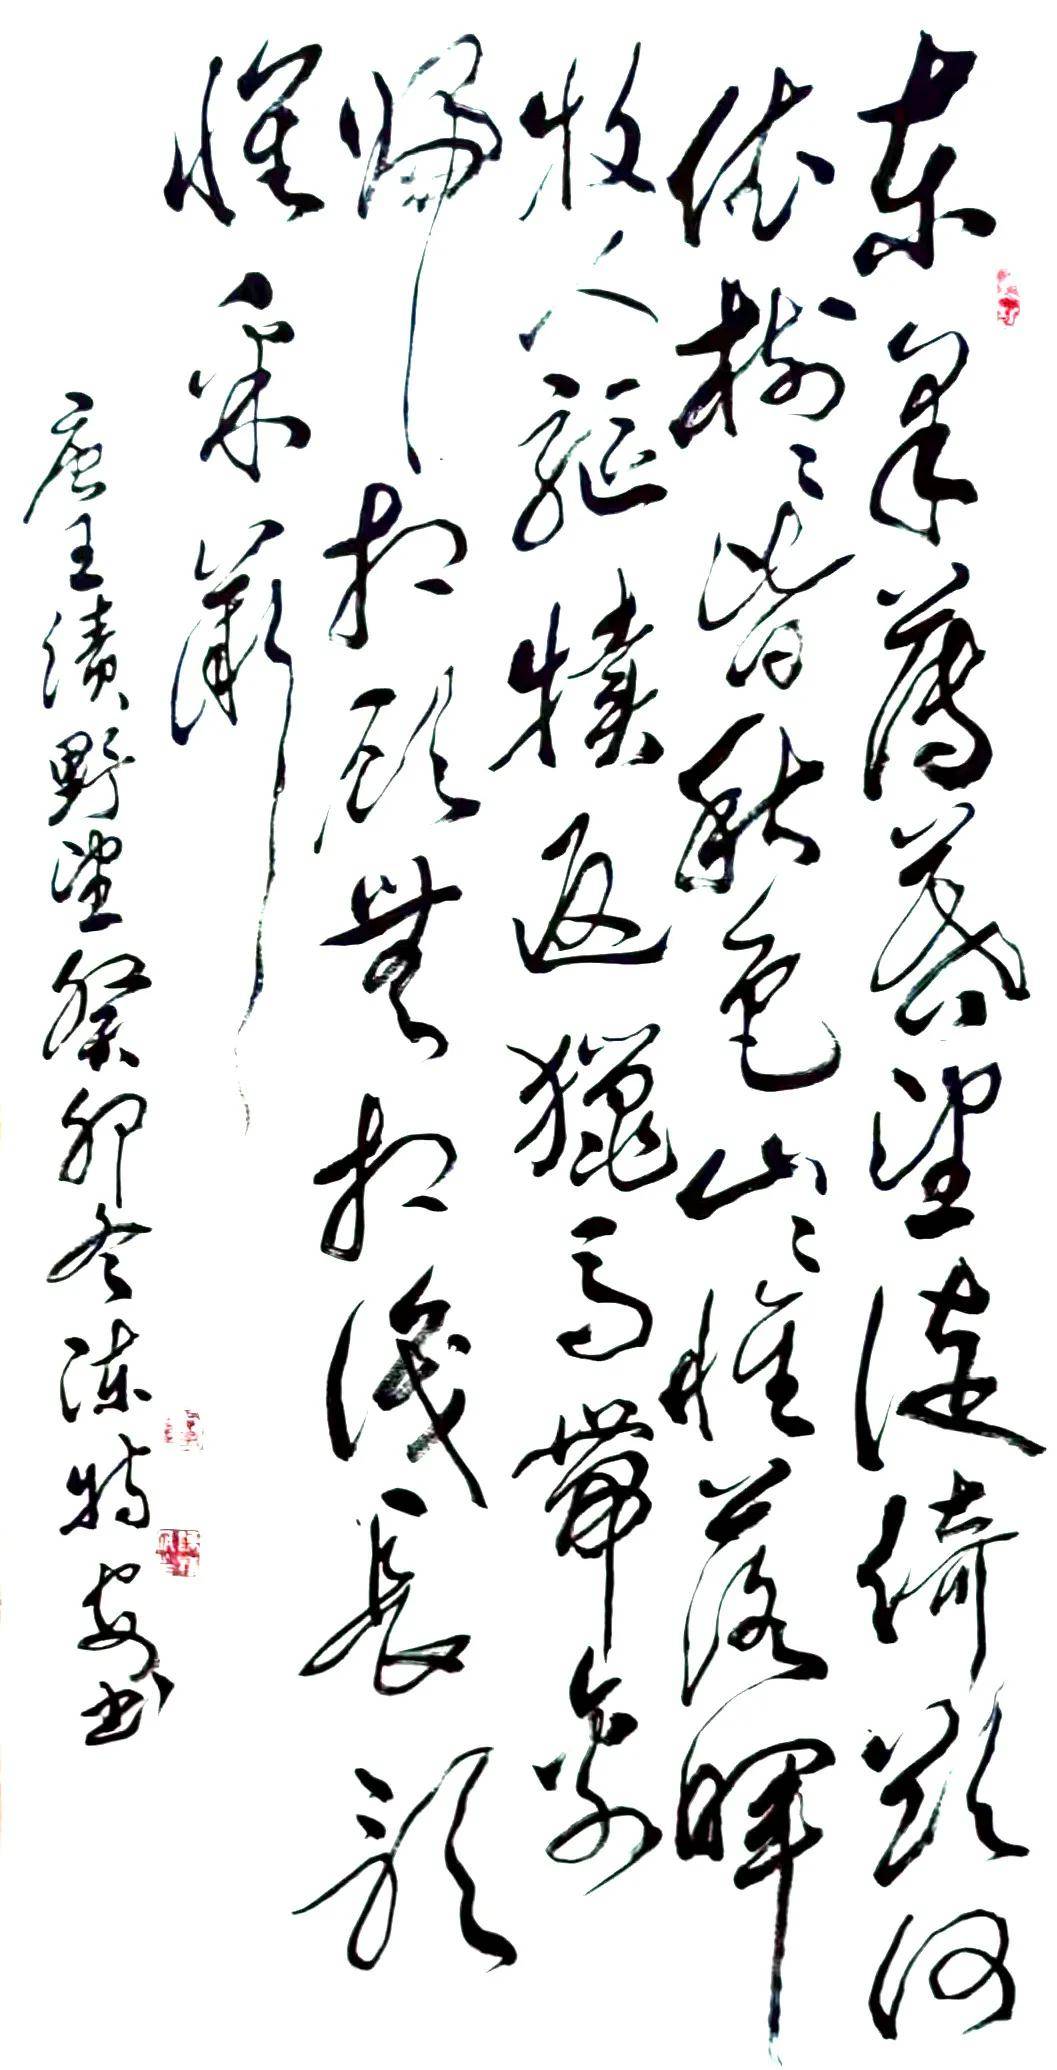 东皋薄暮望徙倚欲何
依树々皆秋色山々惟落晖
牧人驱犊返猎马带禽
归相顾无相识长歌
怀采薇
唐王绩野望癸卯冬陈特安书